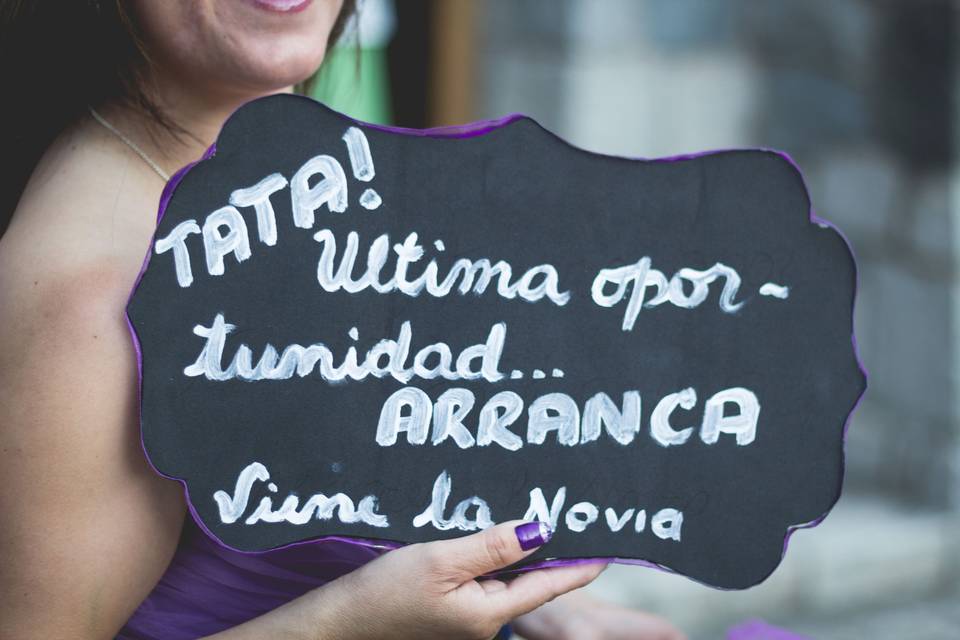 TATA!
Ultima opor-
tunidad...
ARRANCA
Viene la Novia